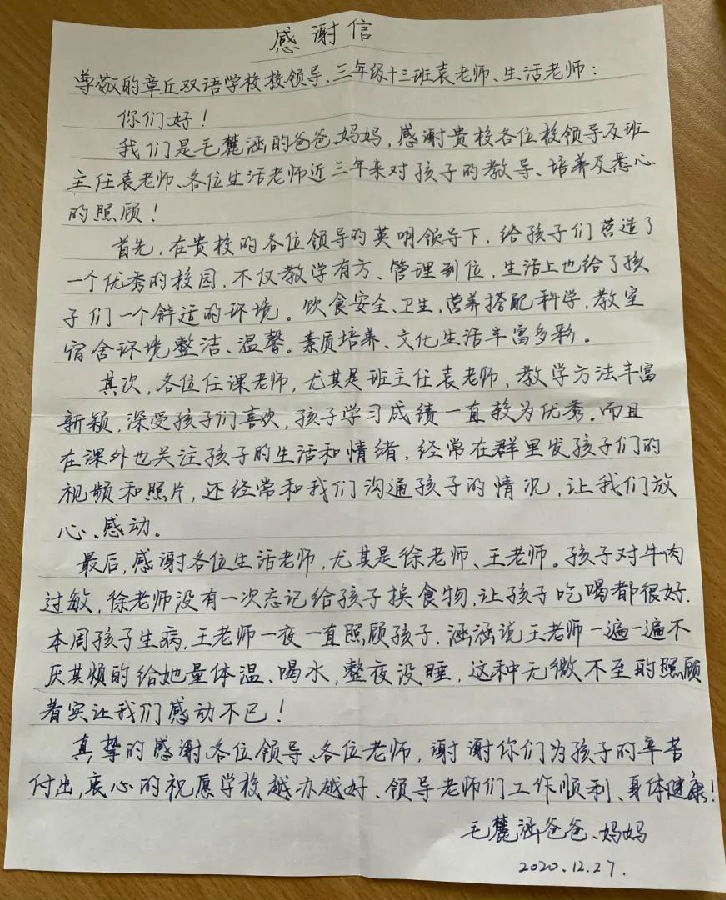 感谢信
尊敬的章丘双语学校校领导、三年级十三班袁老师、生活老师：
你们好！
我们是毛麓涵的爸爸妈妈，感谢贵校各位校领导及班
主任袁老师、各位生活老师近三年来对孩子的教导、培养及悉心
的照顾！
首先，在贵校的各位领导的英明领导下，给孩子们营造了
一个优秀的校园，不仅教学有方、管理到位，生活上也给了孩
子们一个舒适的环境。饮食安全、卫生，营养搭配科学，教室
宿舍环境整洁、温馨。素质培养、文化生活丰富多彩。
其次，各位任课老师，尤其是班主任袁老师，教学方法丰富
新颖，深受孩子们喜欢，孩子学习成绩一直较为优秀。而且
在课外也关注孩子的生活和情绪，经常在群里发孩子们的
视频和照片，还经常和我们沟通孩子的情况，让我们放
心、感动。
最后，感谢各位生活老师，尤其是徐老师、王老师。孩子对牛肉
过敏，徐老师没有一次忘记给孩子换食物，让孩子吃喝都很好.
本周孩子生病，王老师一夜一直照顾孩子，涵涵说王老师一遍一遍不
厌其烦的给她量体温、喝水，整夜没睡，这种无微不至的照顾
着实让我们感动不已！
真挚的感谢各位领导、各位老师，谢谢你们为孩子的辛苦
付出，衷心的祝愿学校越办越好、领导老师们工作顺利、身体健康！
毛麓涵爸爸、妈妈
2020.12.27.